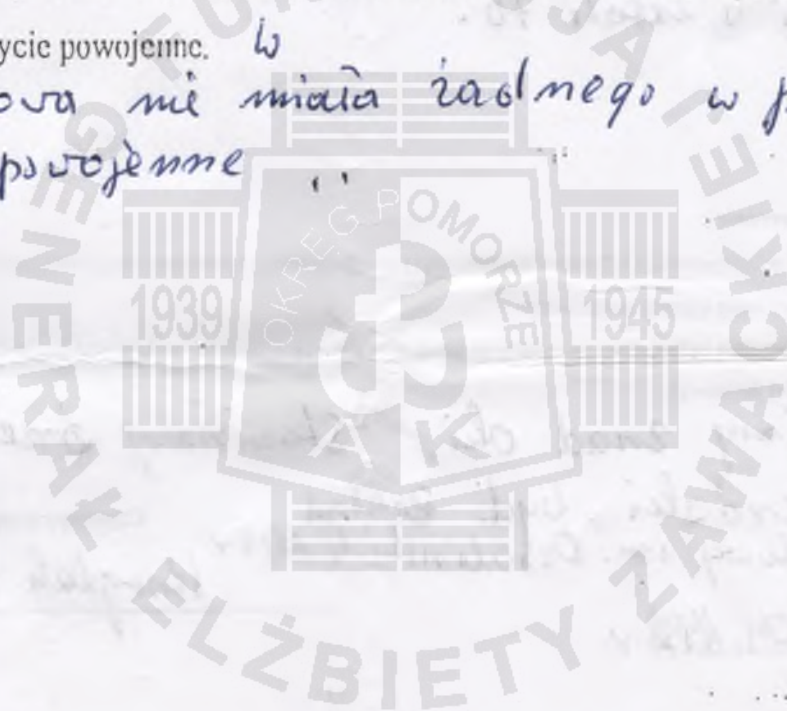 ycie powojenne. W
owa nie miała żadnego w p
powojenne
OKRĘG POMORZE
1939
1945
AK
GENERAŁ ELŻBIETY ZAWACKIEJ